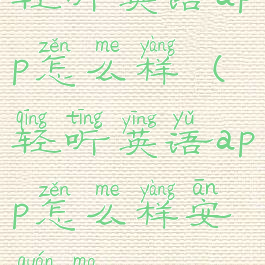 轻听英语ap
zěn me yàng
p怎么样（
qīng tīng yīng yǔ
轻听英语ap
zěn me yàng ān
p怎么样安
quán ma